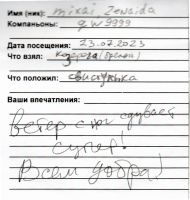 Имя (ник): mikai, Zenaida
Компаньоны: qw9999
Дата посещения: 23.07.2023
Что взял: козерога (брелок)
Что положил: свистулька
Ваши впечатления:
ветер с ног сдувает
супер!
Всем добра!